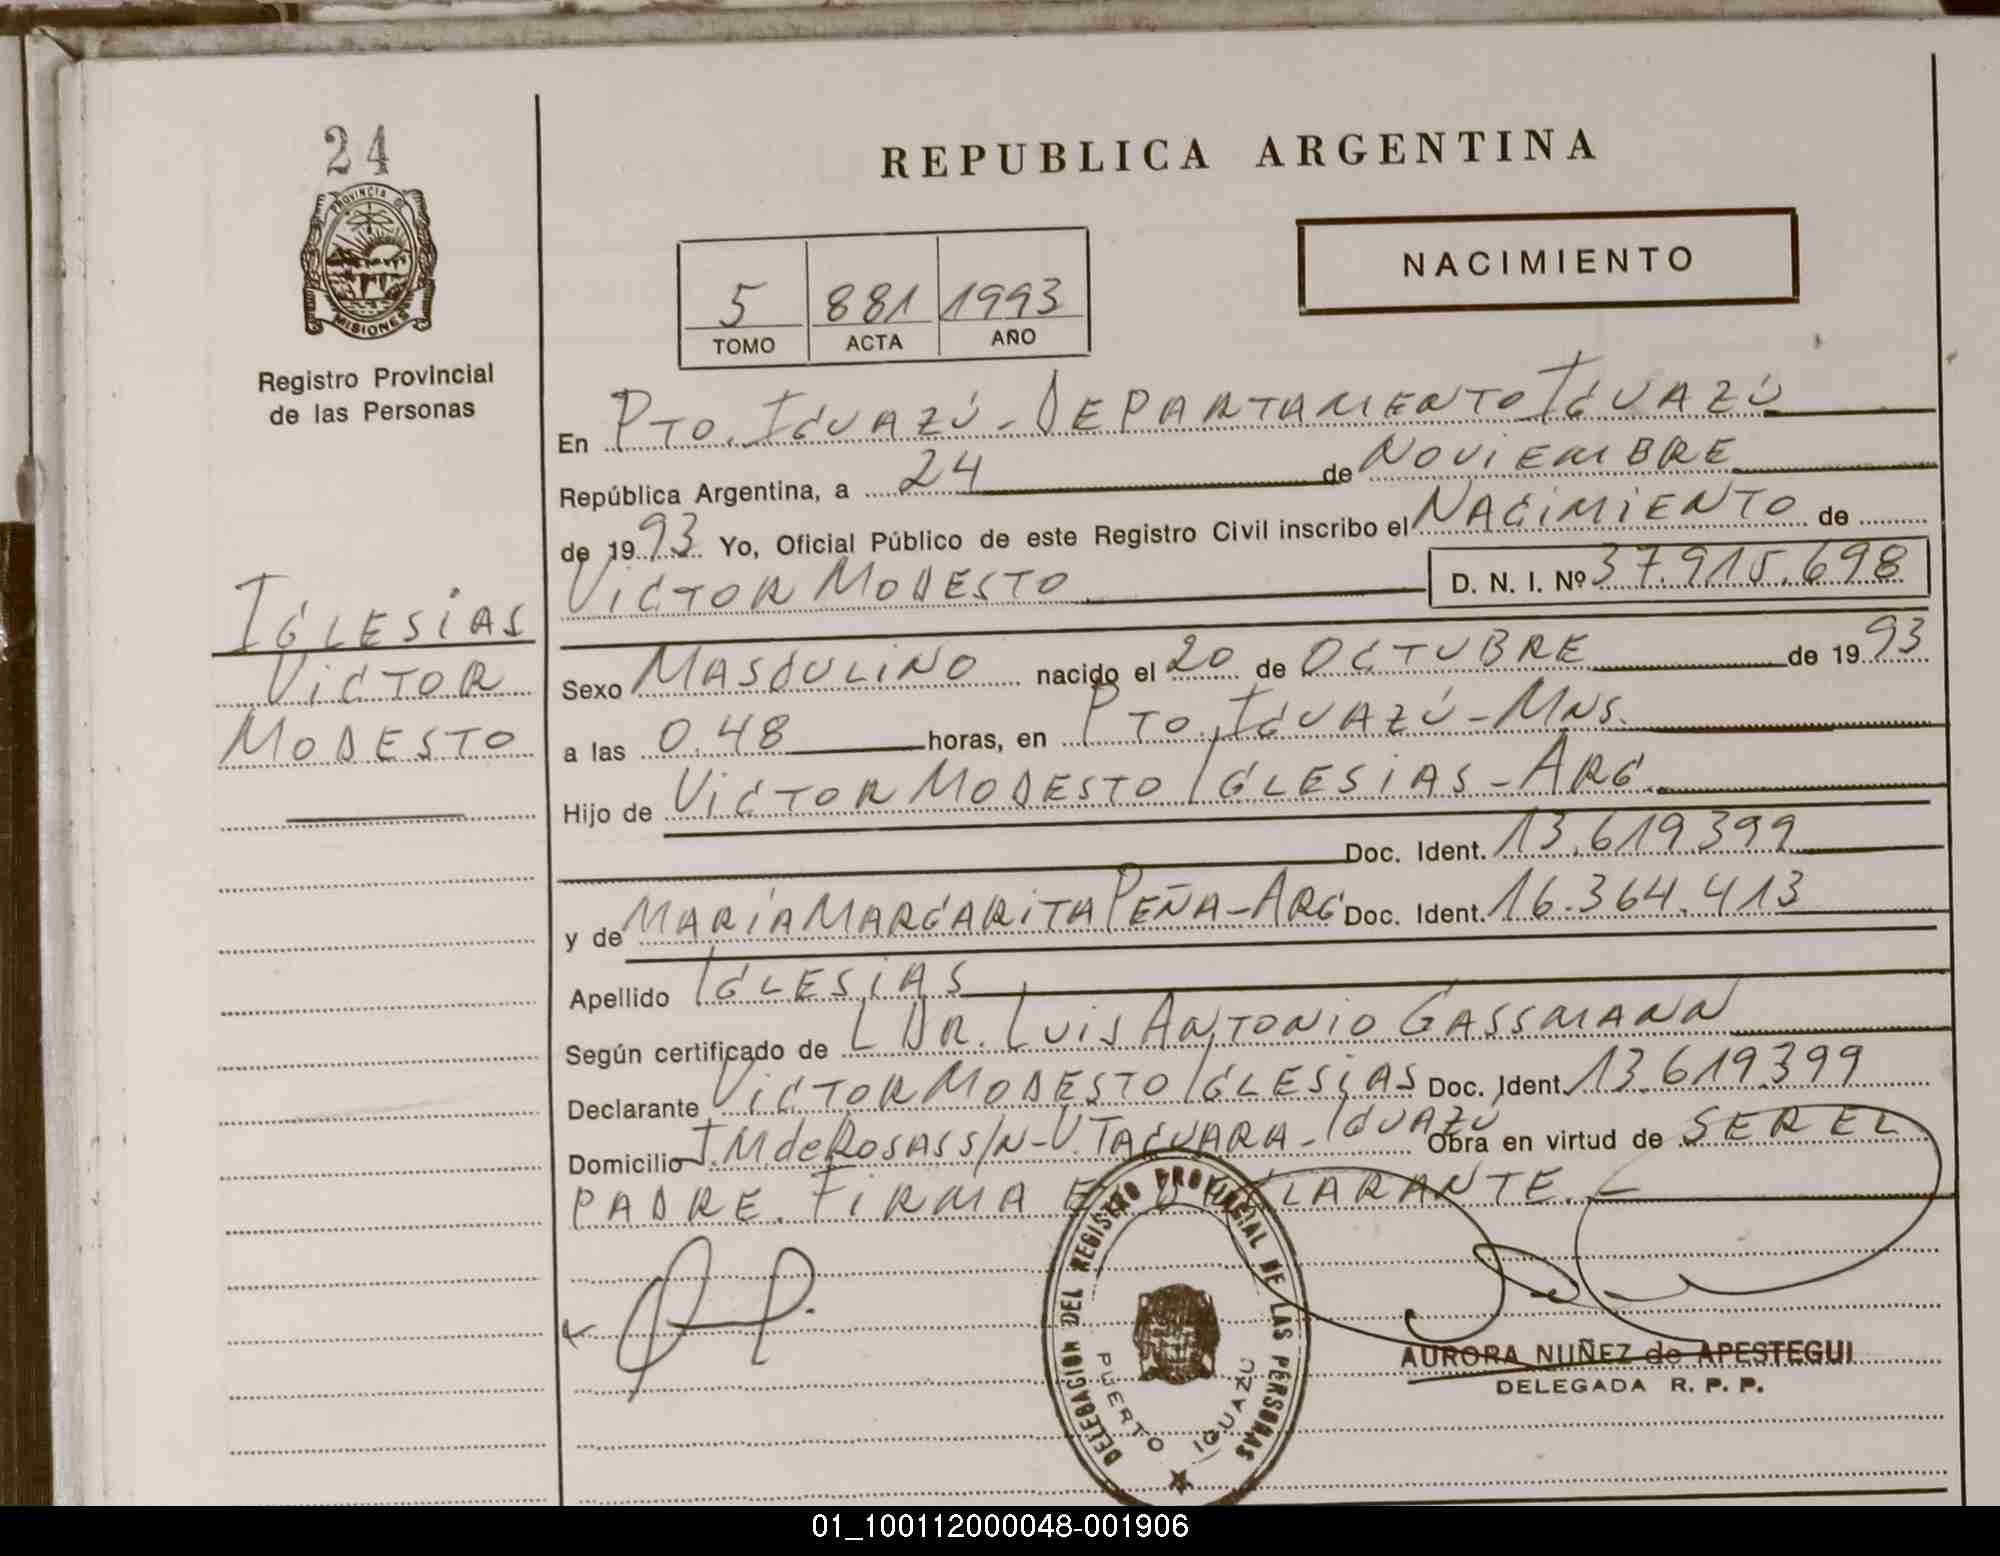 24
PROVINCIA DE
MISIONES
Registro Provincial
de las Personas
IGLESIAS
VICTOR
MODESTO
REPUBLICA ARGENTINA
NACIMIENTO
5 881 1993
TOMO ACTA AÑO
En PTO. IGUAZÚ - DEPARTAMENTO IGUAZÚ
República Argentina, a 24 de NOVIEMBRE
de 1993 Yo, Oficial Público de este Registro Civil inscribo el NACIMIENTO de
VICTOR MODESTO D. N. I. Nº 37.915.698
Sexo MASCULINO nacido el 20 de OCTUBRE de 1993
a las 0.48 horas, en PTO. IGUAZÚ - MNS.
Hijo de VICTOR MODESTO IGLESIAS - ARG.
Doc. Ident. 13.619.399
y de MARÍA MARGARITA PEÑA - ARG Doc. Ident. 16.364.413
Apellido IGLESIAS
Según certificado de DR. LUIS ANTONIO GASSMANN
Declarante VICTOR MODESTO IGLESIAS Doc. Ident. 13.619.399
Domicilio J.M. de ROSAS S/N - V. TACUARA - IGUAZÚ Obra en virtud de SER EL
PADRE. FIRMA EL DECLARANTE. -
DELEGACION DEL REGISTRO PROVINCIAL DE LAS PERSONAS
PUERTO IGUAZU
AURORA NUÑEZ de APESTEGUI
DELEGADA R. P. P.
01_100112000048-001906